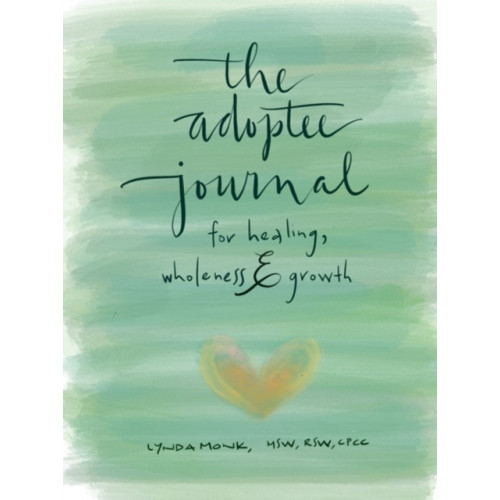 the
adoptee
journal
for healing,
wholeness & growth
LYNDA MONK, MSW, RSW, CPCC